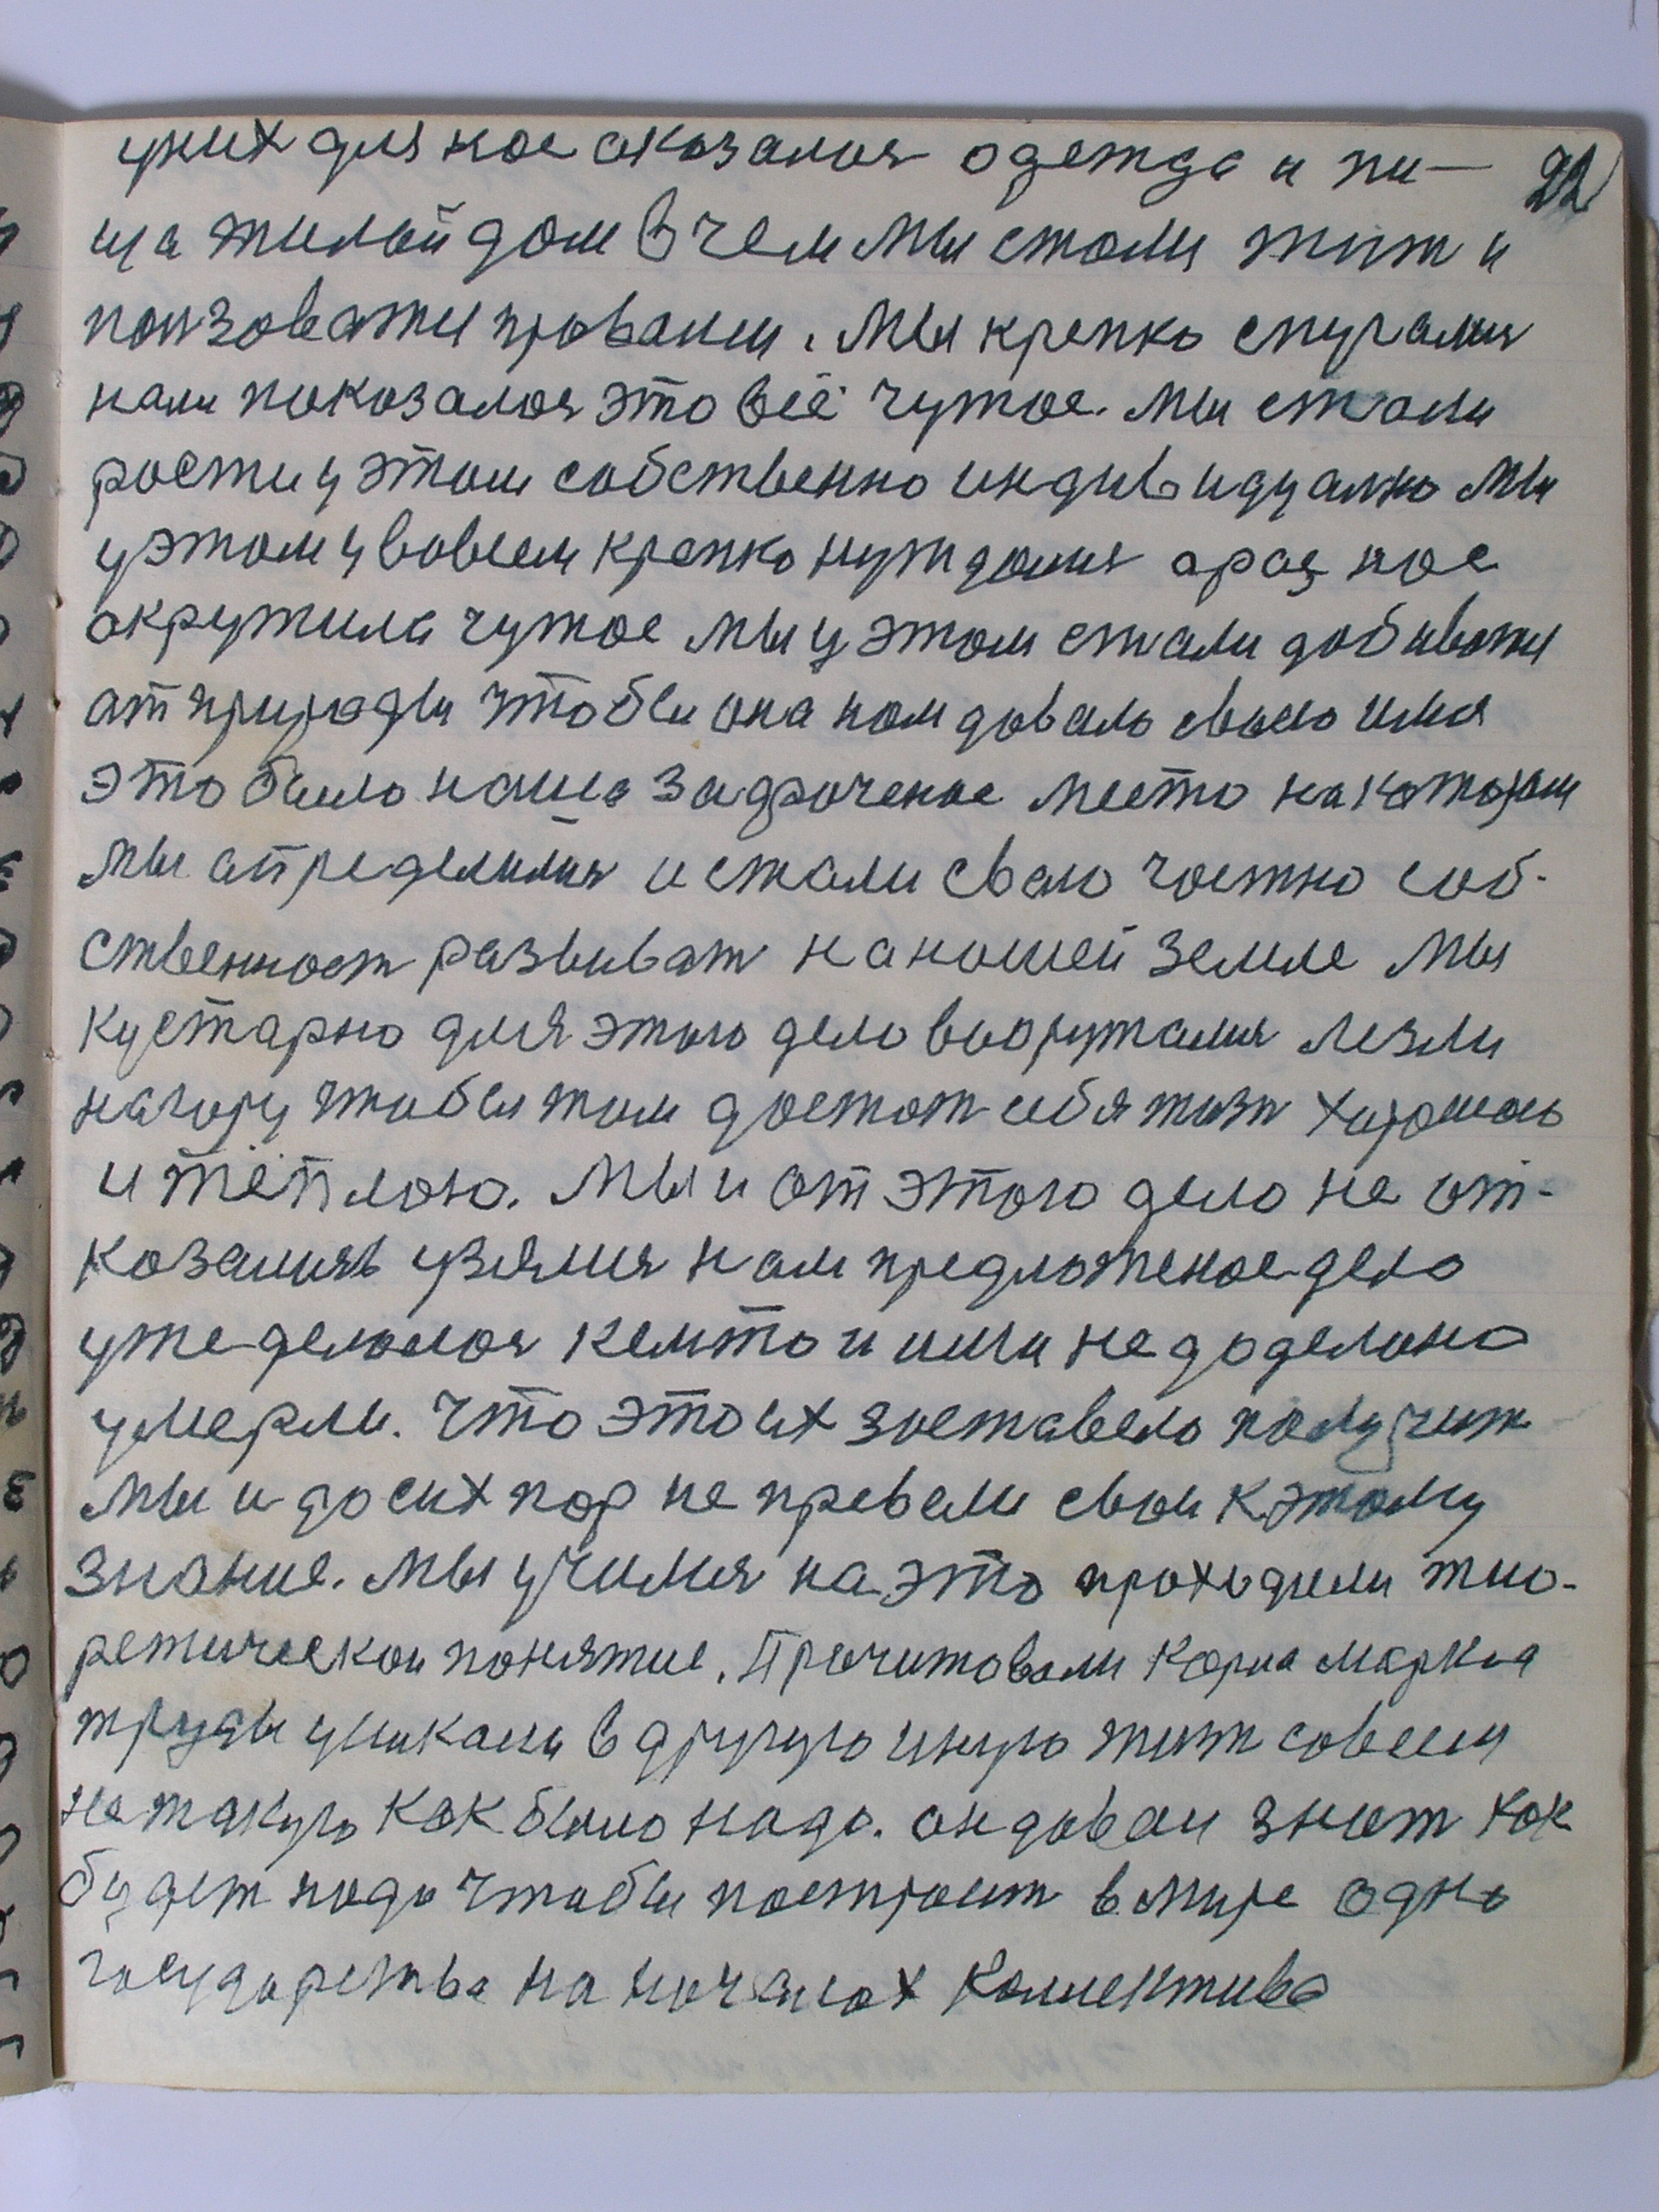 уних для нас оказалося одежда и пи- 22
ща жилой дом в чем мы стали жит и
ползоватся провами. Мы крепко спугалися
нам показалося это всё чужое. Мы стали
рости у этом собственно индивидуално мы
у этом у вовсем крепко нуждалися а раз нас
акружила чужое мы у этом стали добиватся
ат природы чтобы она нам давало свое имя
это было наше задроченое место на котором
мы определилися и стали свою частно соб-
ственност развиват на нашей земле мы
кустарно для этого дело вооружалися лезли
на гору чтобы там достат себя жизн хорошою
и тёплою. Мы и от этого дело не от-
козалися узялися нам предложеное дело
уже делалося кемто и ими недоделано
умерли. Что это их заставело получит
мы и до сих пор не превели свои к этому
знание. Мы училися на это проходили тио-
ретическои понятие. Прочитовали Карла Маркса
труды уникали в другую иную жизн совсем
не такую как было надо. он довал знат как
будет надо чтобы построит в мире одно
государства на началах коллектива